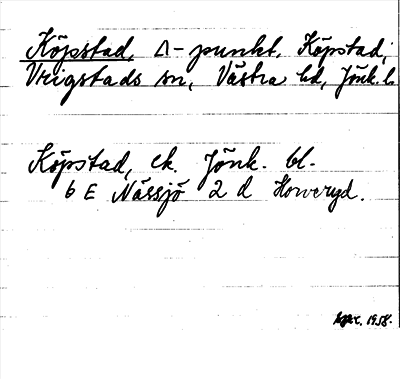 Köpstad, Δ-punkt, Köpstad,
Vrigstads sn, Västra hd, Jönk. l.
Köpstad, ek. Jönk. bl.
6 E Nässjö 2 d Horveryd.
1958.